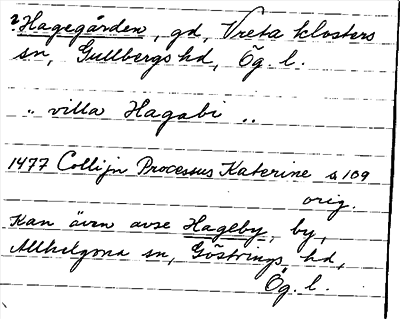 ? Hagegården, gd, Vreta klosters
sn, Gullbergs hd, Ög. l.
.. villa Hagabi ..
1477 Collijn Processus Katerine s 109
orig.
Kan även avse Hageby, by,
Allhelgona sn, Göstrings hd,
Ög. l.